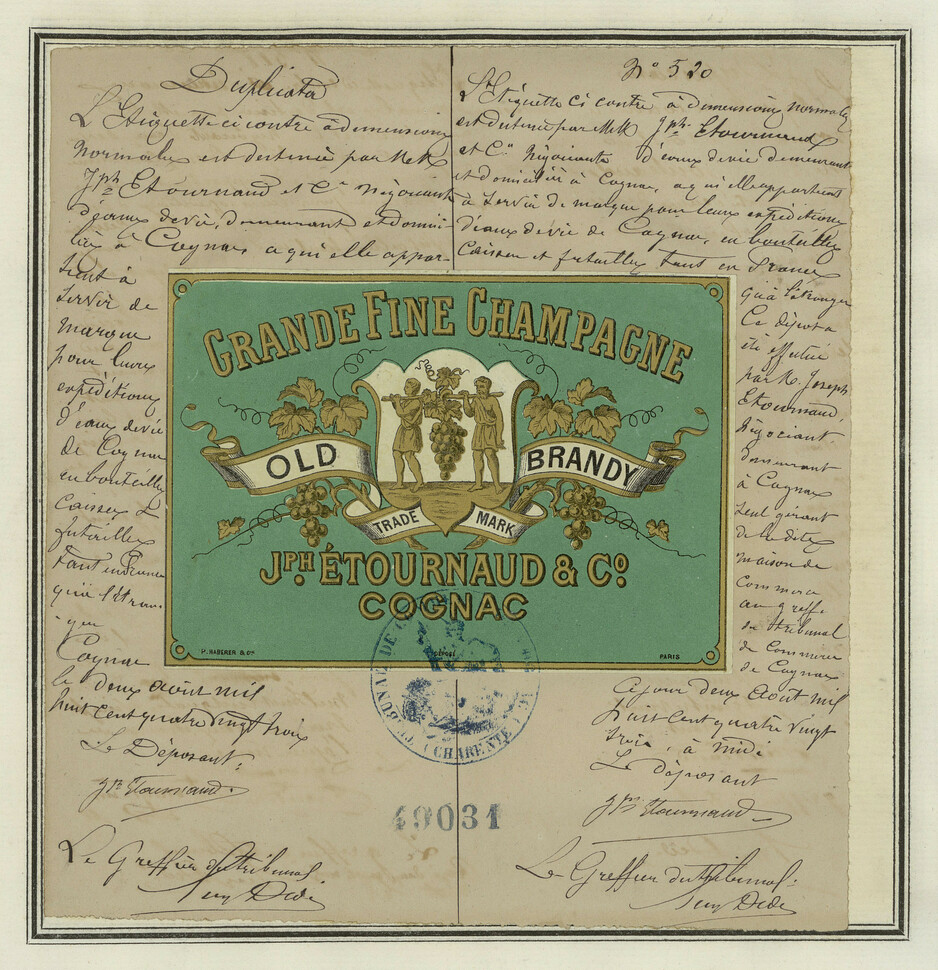 Duplicata
L'Etiquette ci contre à dimensions
normales est destinée par MM
Jph Etournaud et Cie Négociants
d'eaux de vie, demeurant et domici-
liés à Cognac, a qui elle appar-
tient à
servir de
marque
pour leurs
expéditions
d'eaux de vie
de Cognac
en bouteilles
Caisses &
futailles
tant en France
qu'à l'étran-
-ger
Cognac
le deux août mil
huit cent quatre vingt trois
Le Déposant:
Jph Etournaud
Le Greffier du tribunal
No 520
L'Etiquette ci contre à dimensions normales
est destinée par MM Jph Etournaud
et Cie Négociants d'eaux de vie demeurant
et domiciliés à Cognac, a qui elle appartient
à servir de marque pour leurs expéditions
d'eaux de vie de Cognac, en bouteilles
Caisses et futailles tant en France
qu'à l'étranger
Ce dépot a
été effectué
par M. Joseph
Etournaud
Négociant
demeurant
à Cognac
seul gérant
de la dite
maison de
Commerce
au greffe
du tribunal
de Commerce
de Cognac
ce jour deux Août mil
huit cent quatre vingt
trois, à midi
Le déposant
Jph Etournaud
Le Greffier du tribunal:
GRANDE FINE CHAMPAGNE
OLD BRANDY
TRADE MARK
JPH ÉTOURNAUD & CO
COGNAC
P. HABERER & CIE
PARIS
TRIBUNAL DE
(CHARENTE)
49031